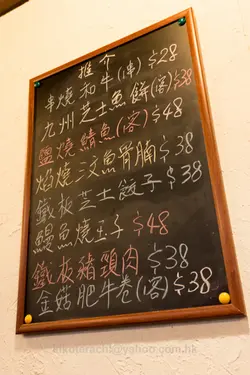 推介
串燒和牛(串) $28
九州芝士魚餅(客) $38
鹽燒鯖魚(客) $48
焰燒三文魚骨腩 $38
鐵板芝士餃子 $38
鰻魚燒玉子 $48
鐵板豬頸肉 $38
金菇肥牛卷(客) $38